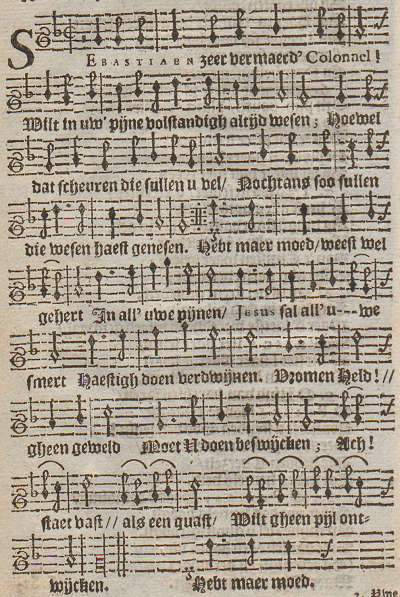 SEBASTIAEN zeer vermaerd' Colonnel!
Wilt in uw' pijne volstandigh altijd wesen; Hoewel
dat scheuren die sullen u vel/ Nochtans soo sullen
die wesen haest genesen. Hebt maer moed/weest wel
gehert In all' uwe pijnen/ Jesus sal all' u---we
smert Haestigh doen verdwijnen. Vromen Held!//
gheen geweld Moet U doen beswijcken; Ach!
staet vast// als een quast/ Wilt gheen pijl ont-
wijcken. Hebt maer moed.